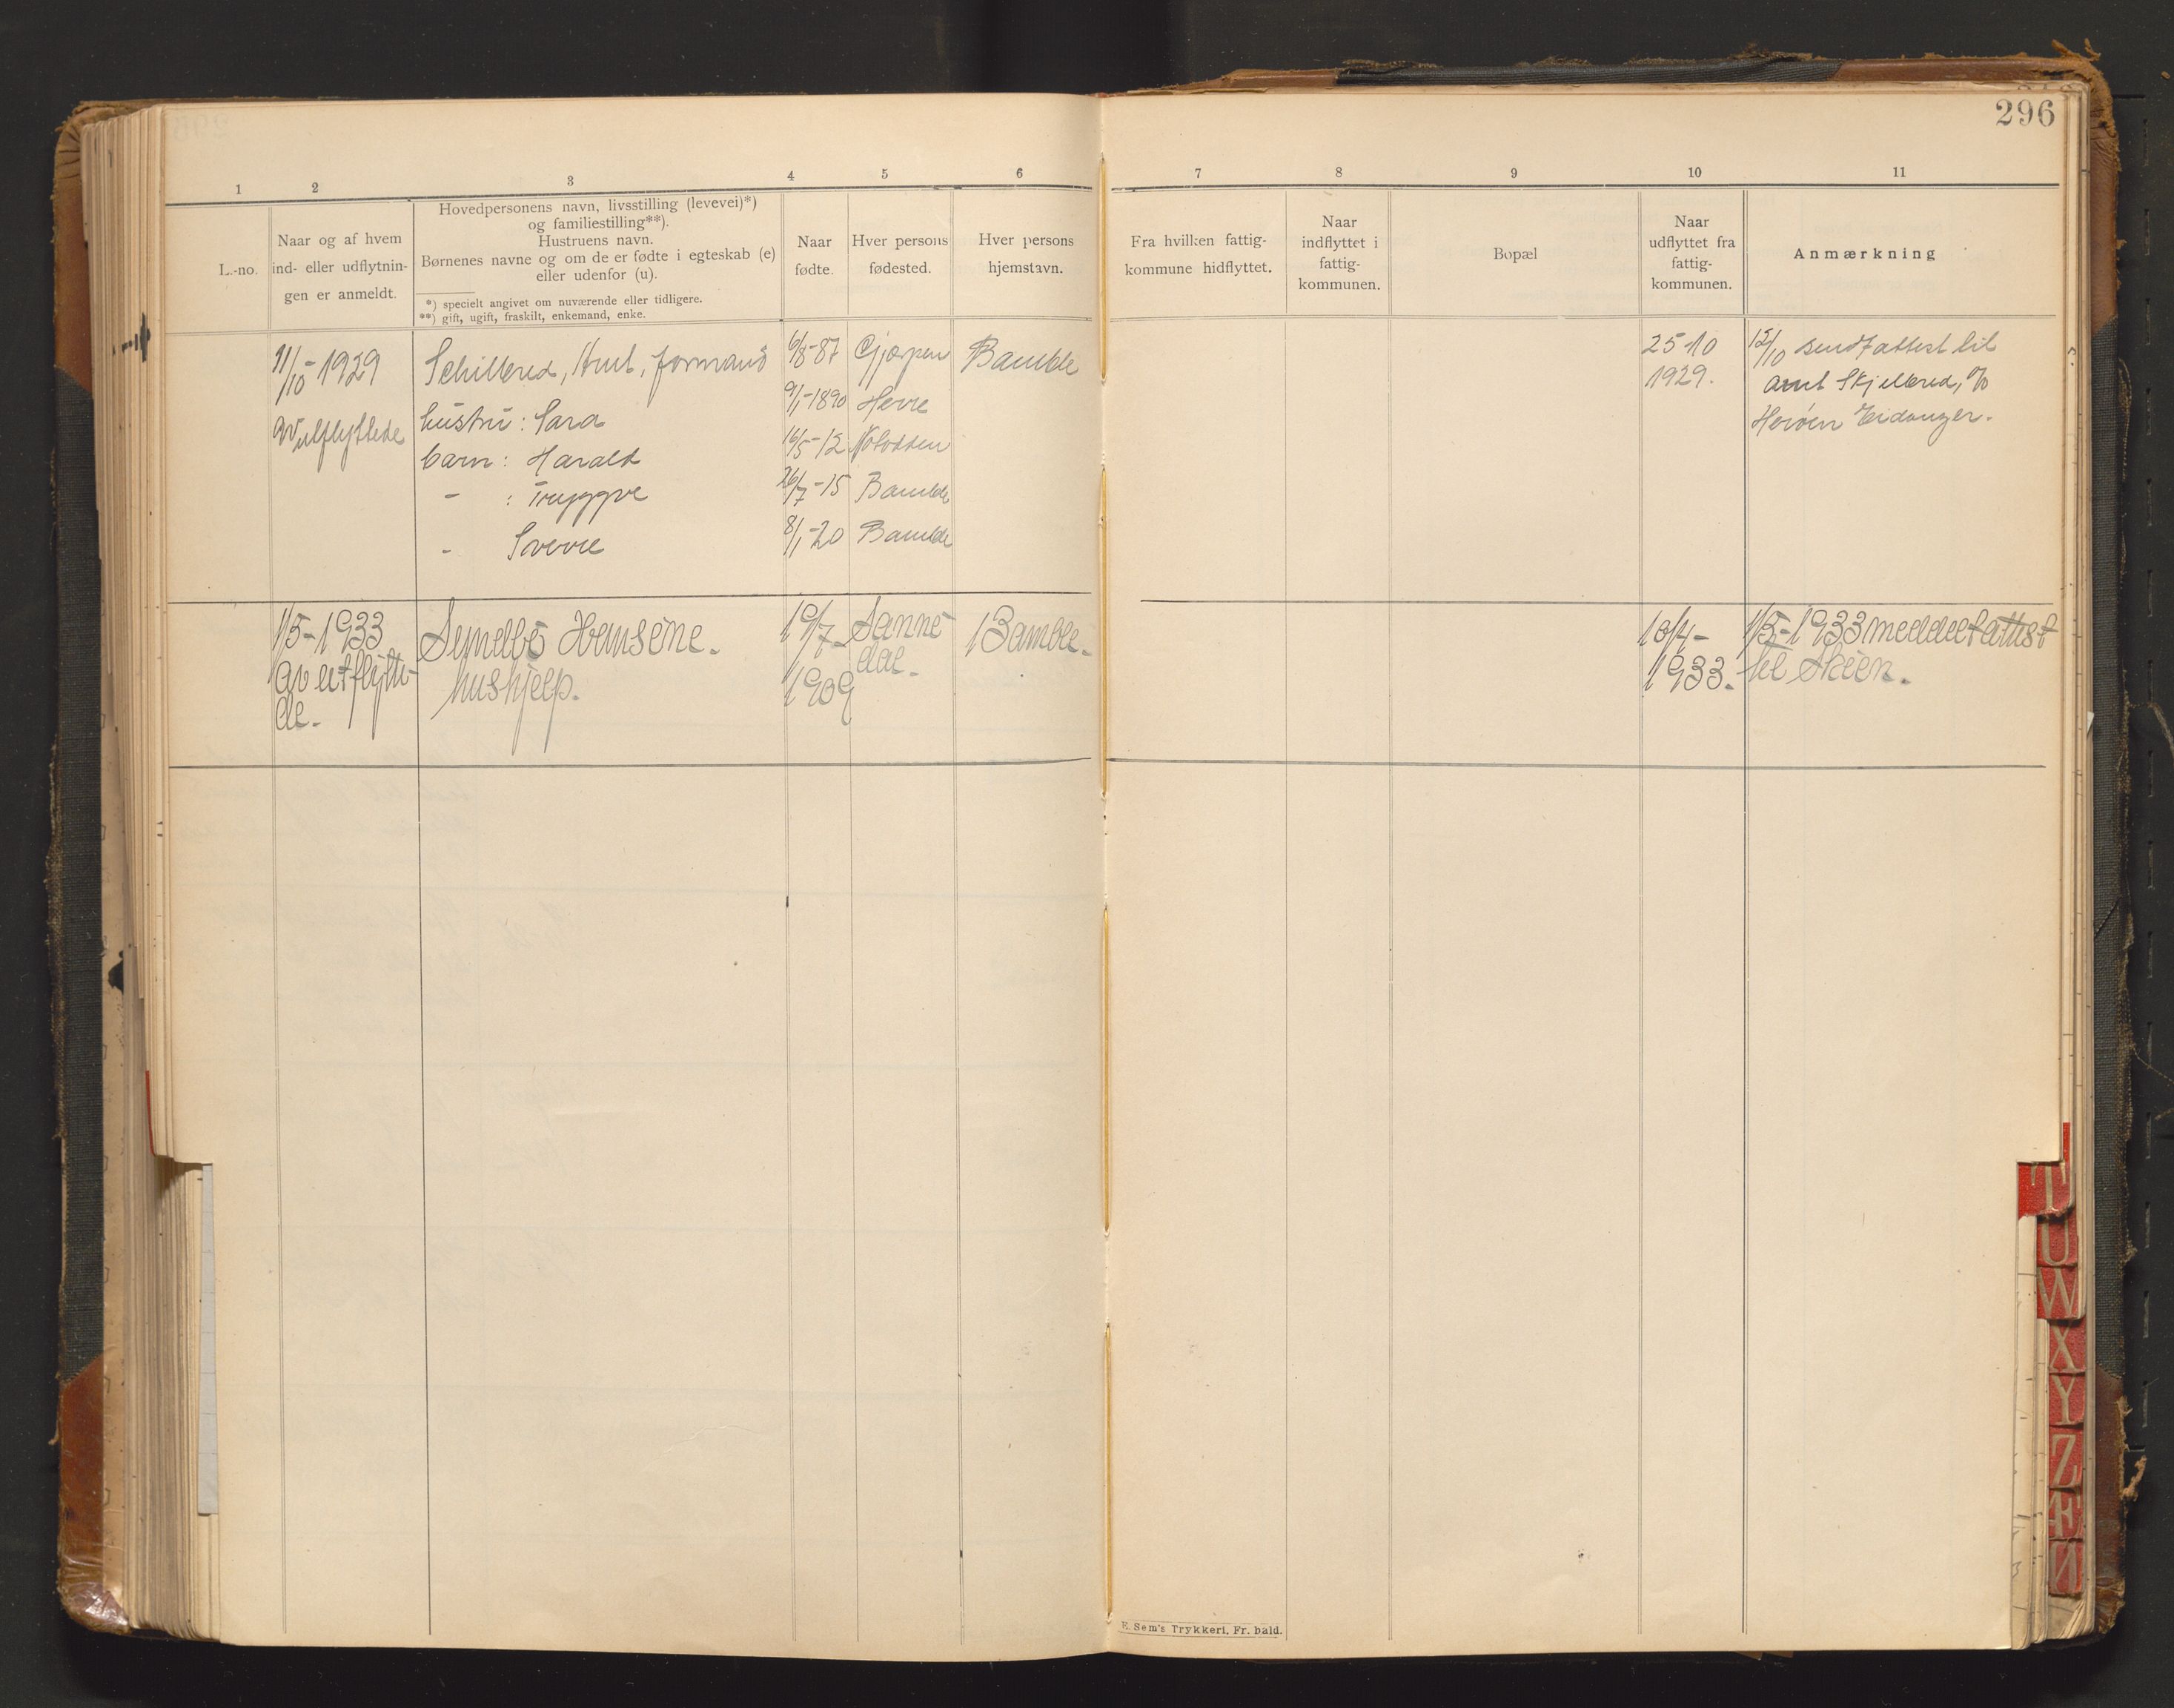 296
1 2 3 4 5 6 7 8 9 10 11
L.-no.
Naar og af hvem
ind- eller udflytnin-
gen er anmeldt.
Hovedpersonens navn, livsstilling (levevei)*)
og familiestilling**).
Hustruens navn.
Børnenes navne og om de er fødte i egteskab (e)
eller udenfor (u).
*) specielt angivet om nuværende eller tidligere.
**) gift, ugift, fraskilt, enkemand, enke.
Naar
fødte.
Hver persons
fødested.
Hver persons
hjemstavn.
Fra hvilken fattig-
kommune hidflyttet.
Naar
indflyttet i
fattig-
kommunen.
Bopæl
Naar
udflyttet fra
fattig-
kommunen.
Anmærkning
11/10-1929 Schillered, Arnt, formand 6/8-87 Gjerpen Bamble 25-10 12/10 sendt attest til
1929. Arnt Skjellered, %
av utflyttede hustru: Sara 9/1-1890 Herre Herøen Eidanger.
barn: Harald 16/5-12 Notodden
- : Tryggve 26/7-15 Bamble
- Sverre 8/1-20 Bamble
1/5-1933 Syndbø 19/7- Sanne- Bamble. 10/4- 1/5-1933 meddelt attest
av utflytte- hushjelp. 1909 dal. 1933. til Skien.
de.
E. Sem's Trykkeri, Fr. hald.
T
U
W
X
Y
Z
Æ